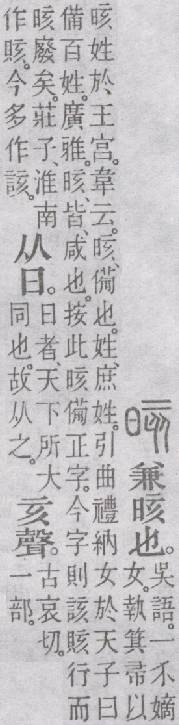 晐 兼晐也。
吳語。一不嫡
女。執箕帚以
晐姓於王宮。韋云。晐、備也。姓、庶姓。引曲禮納女於天子曰
備百姓。廣雅。晐、皆、咸也。按此晐備正字。今字則該賅行而
晐廢矣。莊子、淮南
作賅。今多作該。
从日。
日者、天下所大
同也。故从之。
亥聲。
古哀切。
一部。